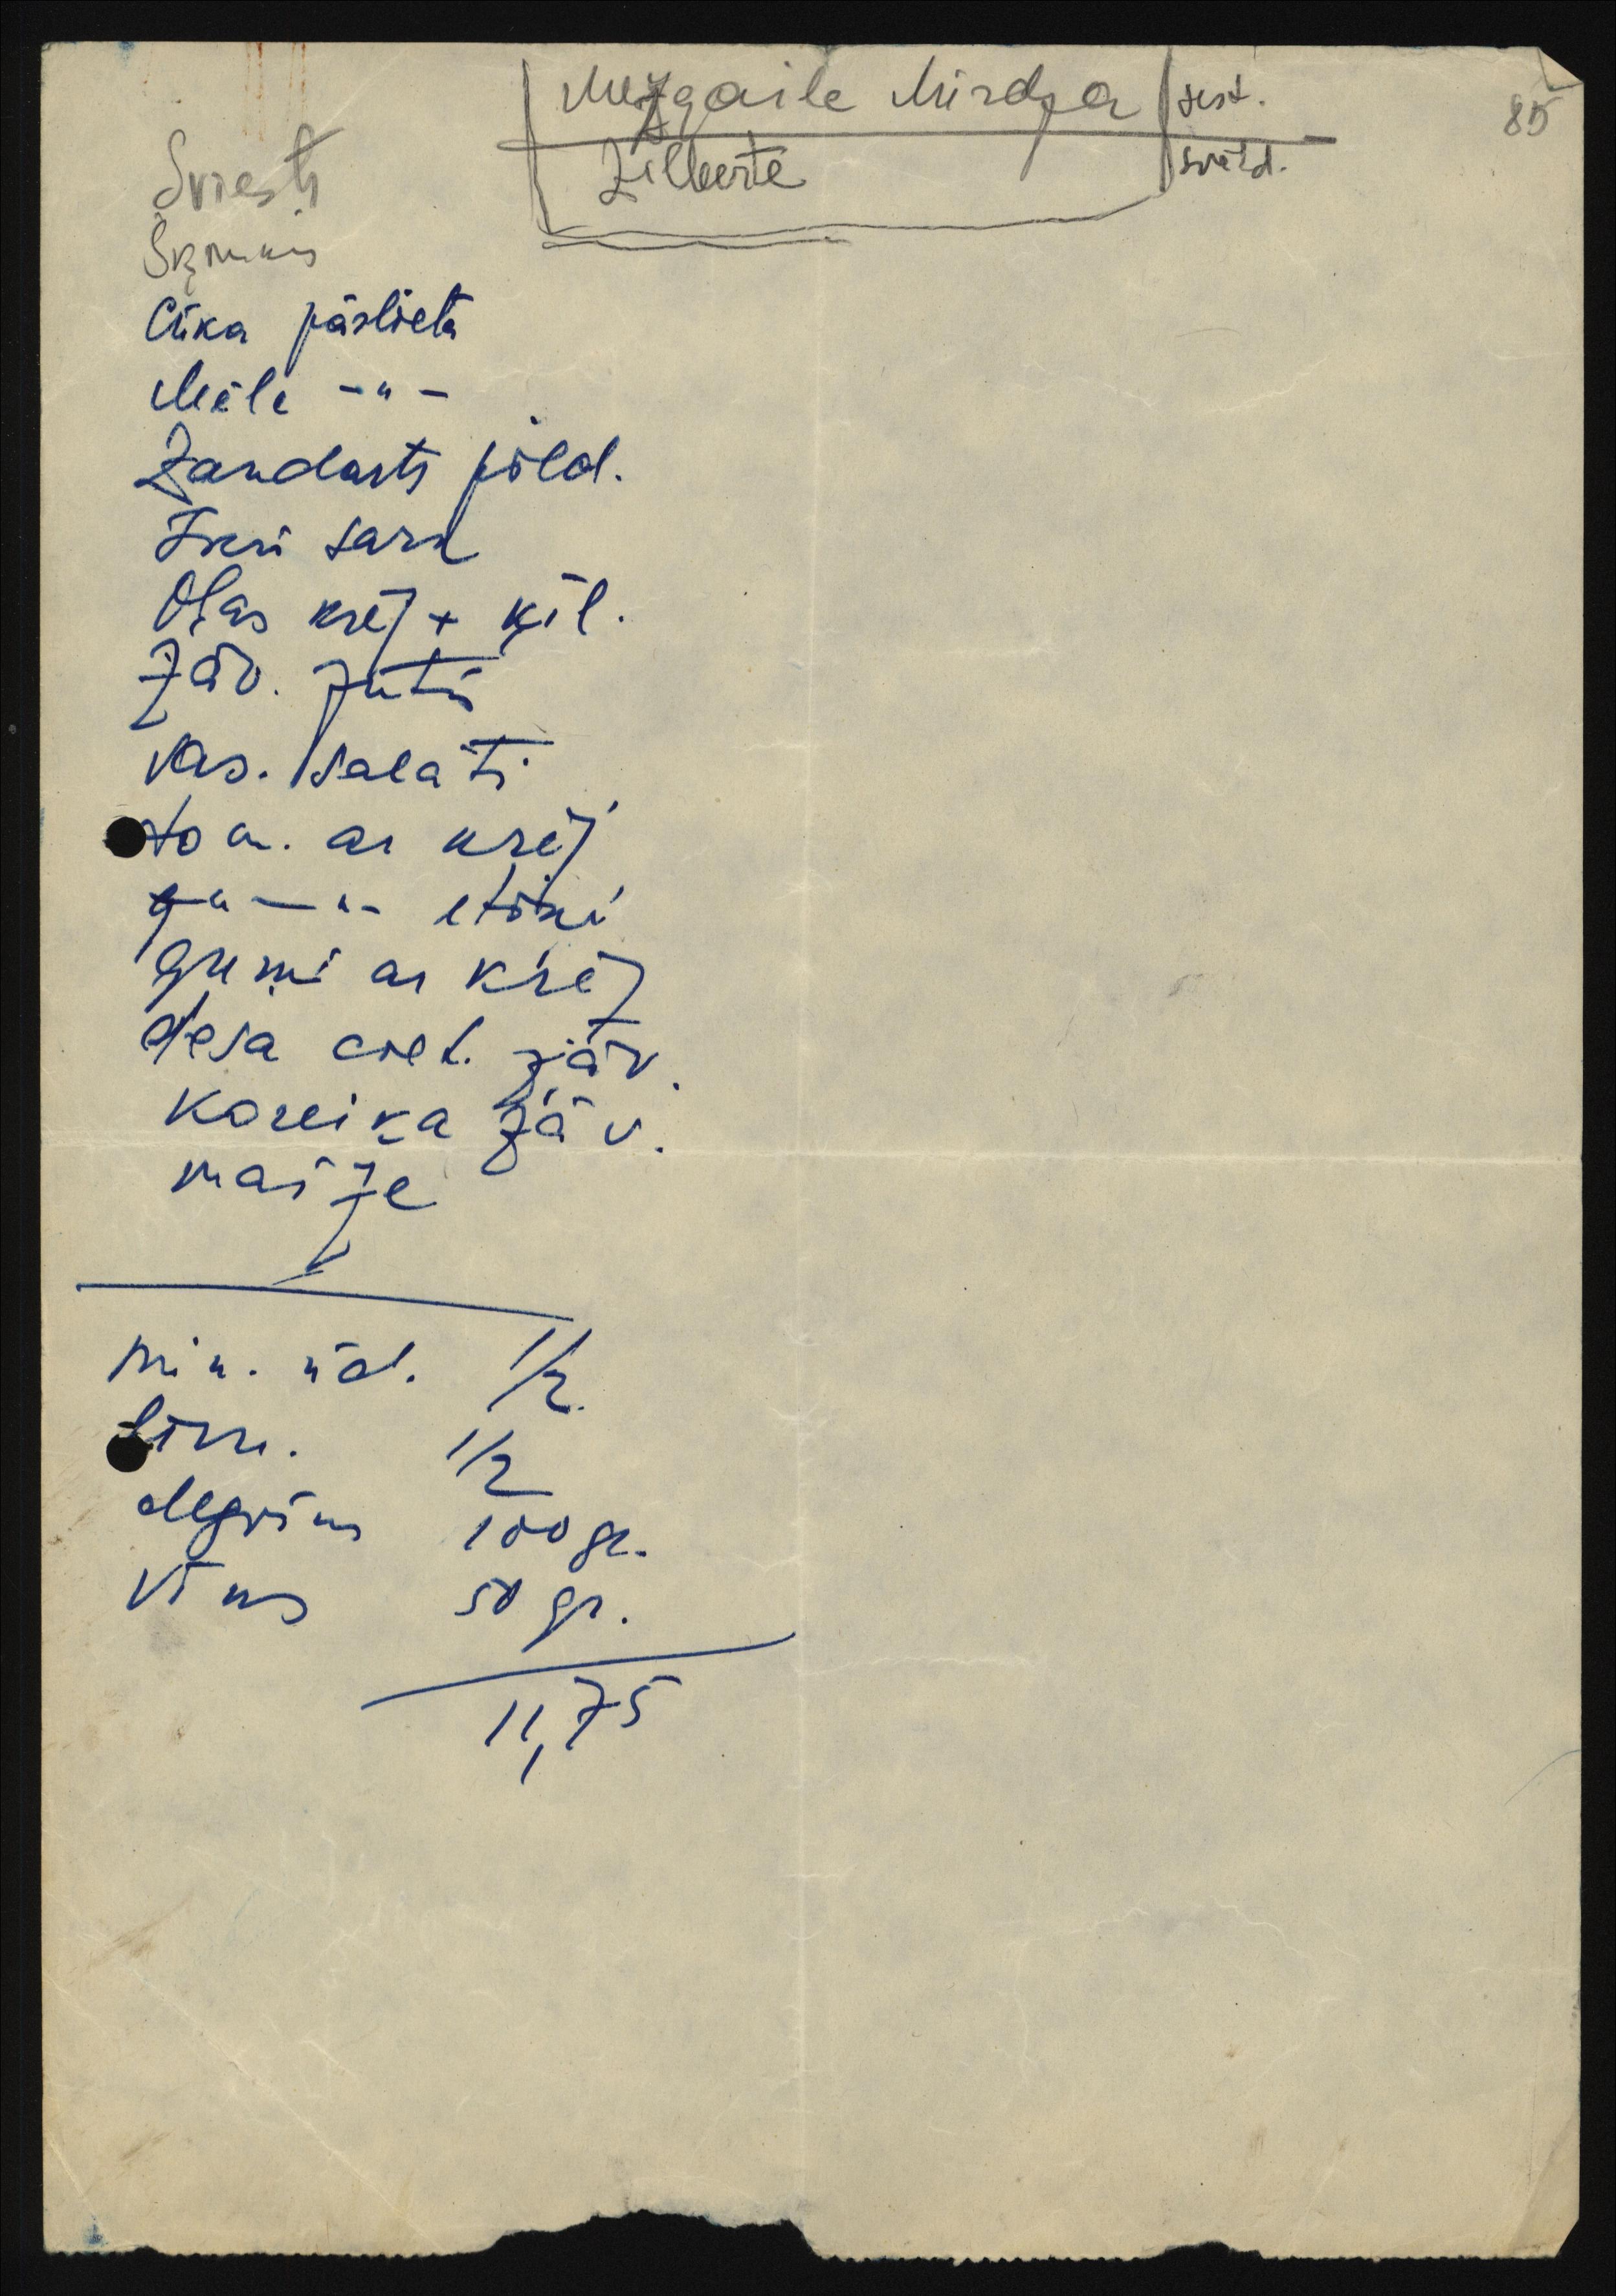 Mežgaile Mirdza sest.
85
Zilberte svētd.
Sviests
Šķiņķis
Cūka pārlieta
Mēle -"-
Zandarts pild.
Ikri sark
Olas krēj + ķil.
Žāv. zutis
Vas. salāti
tom. ar krēj
-"- -"- etiķi
gurķi ar krēj
desa ciet. žāv.
Koreika žāv.
maize
min. ūd. 1/2
Lim. 1/2
degvīns 100 gr.
Vīns 50 gr.
11,75